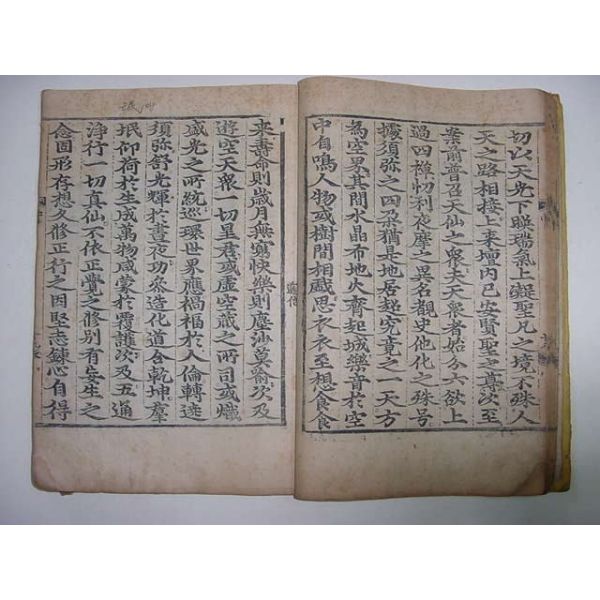 切以天光下映瑞氣上凝聖凡之境不殊人
天之路相接上来壇內已安賢聖之尊次至
案前普召天仙之衆夫天衆者始分六欲上
過四禪忉利夜摩之異名覩史他化之殊号
據須弥之四朶猶是地居超究竟之一天方
為空界其間水晶布地火齊起城樂音於空
中自鳴人物或樹間相感思衣衣至想食食
来壽命則歲月無窮快樂則塵沙莫喻次及
遊空天衆一切星君或虛空藏之所司或熾
盛光之所統巡環世界應禍福於人倫轉遶
須弥舒光輝於晝夜功叅造化道合乾坤羣
氓仰荷於生成萬物咸蒙於覆護次及五通
淨行一切真仙不依正覺之修別有妄生之
念固形存想久修正行之因堅志鍊心自得